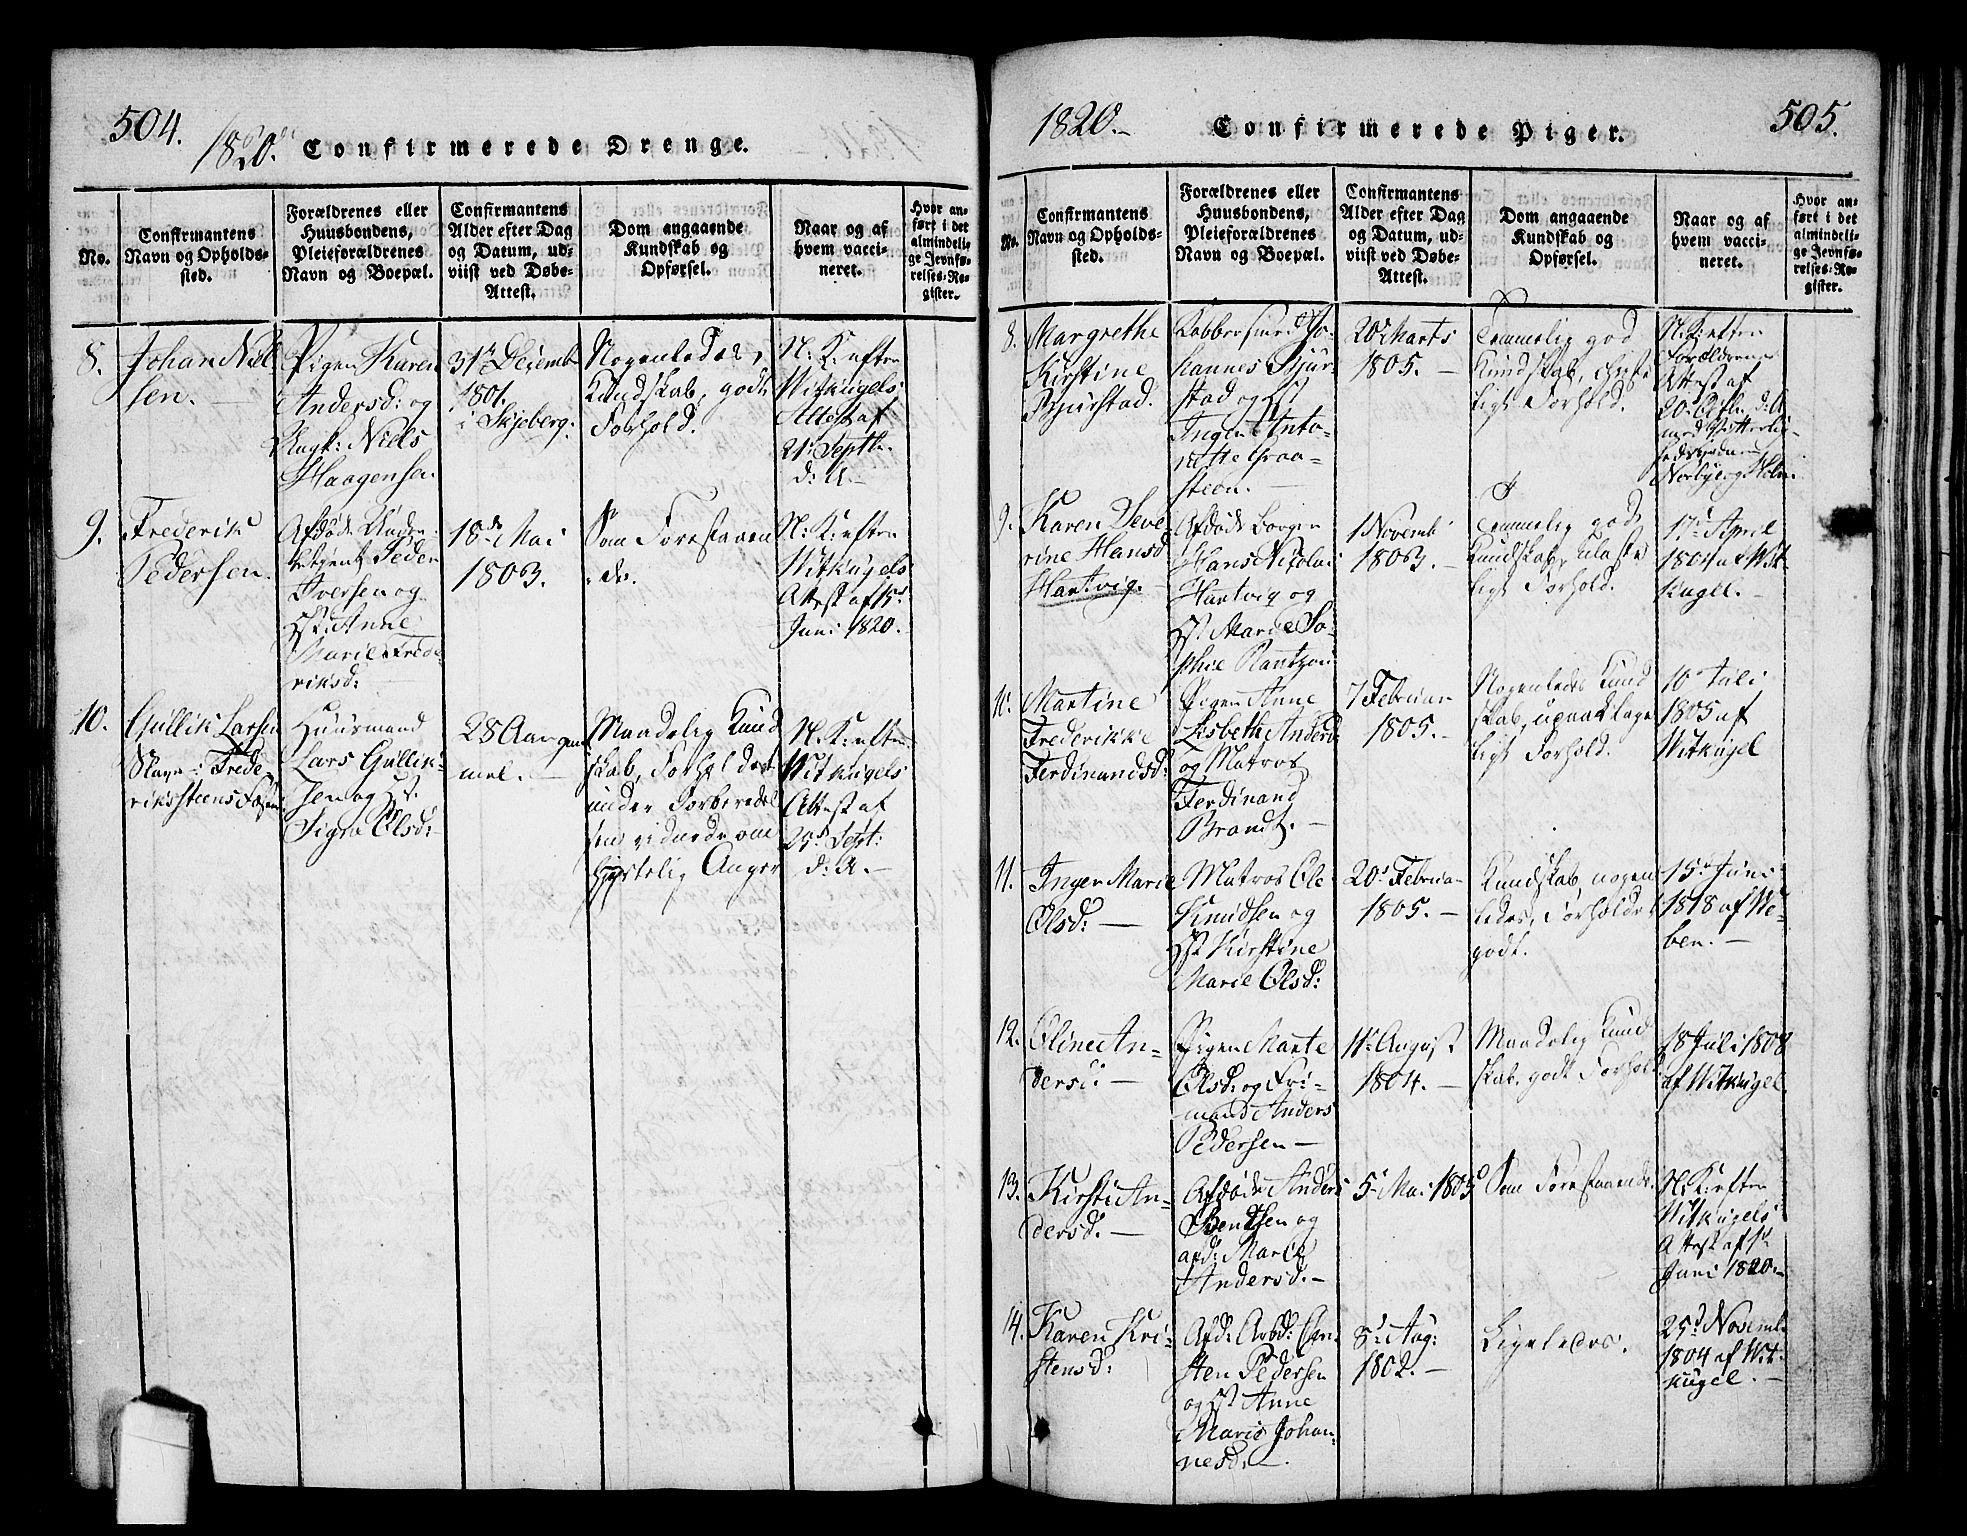 504.
1820.
Confirmerede Drenge.
No.
Confirmantens
Navn og Opholds-
sted.
Forældrenes eller
Huusbondens,
Pleieforældrenes
Navn og Boepæl.
Confirmantens
Alder efter Dag
og Datum, ud-
viist ved Døbe-
Attest.
Dom angaaende
Kundskab og
Opførsel.
Naar og af
hvem vacci-
neret.
Hvor an-
ført i det
almindeli-
ge Jevnfø-
relses-Re-
gister.
8.
Johan Niel
sen.
Pigen Karen
Andersd: og
Ungk: Niels
Haagensen
31te Decemb
1801.
i Skjeberg.
Nogenledes
Kundskab, godt
Forhold.
N: K: efter
Witkugels
Attest af
21d Septb.
d: A.
9.
Frederik
Pedersen.
Afdøde Under-
Peder
Iversen og
Hst: Anne
Marie Frede-
riksd:
18de Mai
1803.
Som Forestaaen
de.
N: K: efter
Witkugels
Attest af 15d
Juni 1820.
10.
Gullik Larsen
Slave i Frede-
rikssteens Fæstn:
Huusmand
Lars Gullik-
sen og Hst.
Signe Olsd:
28 Aar gam
mel.
Maadelig Kund
skab, Forholdet
under Forberedel
sen vidnede om
Anger
N: K: efter
Witkugels
Attest af
25d Sept:
d: A.
1820.
Confirmerede Piger.
505.
No.
Confirmantens
Navn og Opholds-
sted.
Forældrenes eller
Huusbondens,
Pleieforældrenes
Navn og Boepæl.
Confirmantens
Alder efter Dag
og Datum, ud-
viist ved Døbe-
Attest.
Dom angaaende
Kundskab og
Opførsel.
Naar og af
hvem vacci-
neret.
Hvor an-
ført i det
almindeli-
ge Jevnfø-
relses-Re-
gister.
8.
Margrethe
Kirstine
Bjurstad.
Kobbersmed Jo-
hannes Bjur-
stad og Hst
Inger Anto-
nette Graa-
steen.
20de Marts
1805.
Temmelig god
Kundskab, christe
ligt Forhold.
N: K: efter
Forældrenes
Attest af
d: A.
med
Norbye og Holm
9.
Karen Seve-
rine Hansd
Hartvig.
Afdøde Borger
Hans Nikolai
Hartvig og
Hst Marie So-
phie Rantzau
1 Novemb
1803.
Temmelig god
Kundskab,
ligt Forhold.
17d April
1804 af Wit
kugel.
10.
Martine
Frederikke
Ferdinandsd:
Pigen Anne
Lisbeth Andersd
og Matros
Ferdinand
Brandt.
7 Februar
1805.
Nogenledes Kund
skab, upaaklage
ligt Forhold.
10 Juli
1805 af
Witkugel
11.
Inger Marie
Olsd:
Matros Ole
Knudsen og
Hst Kirstine
Marie Olsd:
20d Februar
1805.
Kundskab nogen
ledes, Forholdet
godt.
15d Juni
1818 af We-
ben.
12.
Oline An-
dersd:
Pigen Marte
Olsd: og Fri-
mand Anders
Pedersen
11te August
1804.
Maadelig Kund
skab, godt Forhold
18 Juli 1808
af Witkugel.
13.
Kirsti An-
dersd.
Afdøde Anders
Bendtsen og
afd: Marie
Andersd.
5 Mai 1805
Som Forestaaende.
N: K: efter
Witkugels
Attest af 1d
Juni 1820.
14.
Karen Kri-
stensd:
Afd: Arbd: Chri
sten Pedersen
og Hst Anne
Marie Johan-
nesd.
8d Aug:
1802.
Ligeledes.
25d Novemb
1804 af Wit-
kugel.